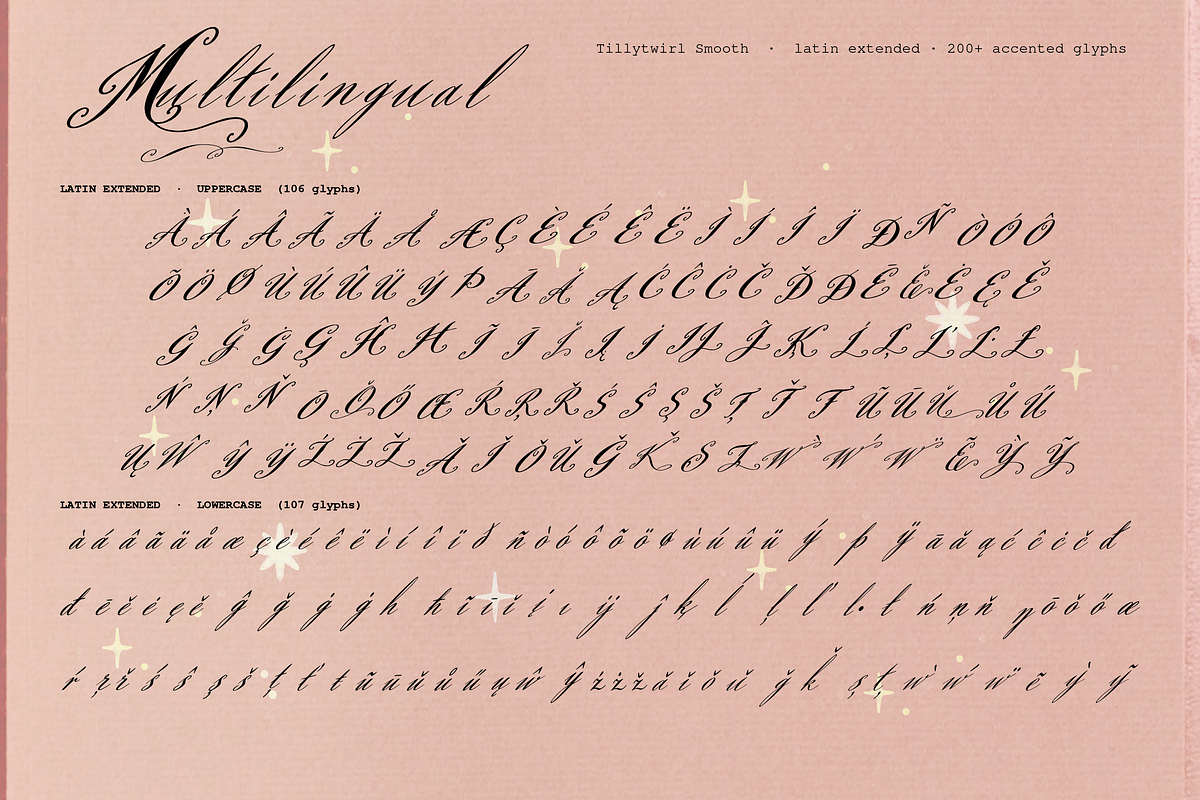 Multilingual
Tillytwirl Smooth · latin extended · 200+ accented glyphs
LATIN EXTENDED · UPPERCASE (106 glyphs)
À Á Â Ã Ä Å Æ Ç È É Ê Ë Ì Í Î Ï Ð Ñ Ò Ó Ô
Õ Ö Ø Ù Ú Û Ü Ý Þ Ā Ă Ą Ć Ĉ Ċ Č Ď Đ Ē Ĕ Ė Ę Ě
Ĝ Ğ Ġ Ģ Ĥ Ħ Ĩ Ī Ĭ Į İ IJ Ĵ Ķ Ĺ Ļ Ľ Ŀ Ł
Ń Ņ Ň Ō Ŏ Ő Œ Ŕ Ŗ Ř Ś Ŝ Ş Š Ţ Ť Ŧ Ũ Ū Ŭ Ů Ű
Ų Ŵ Ŷ Ÿ Ź Ż Ž Ǎ Ǐ Ǒ Ǔ Ǧ Ǩ Ș Ț Ẁ Ẃ Ẅ Ẽ Ỳ Ỹ
LATIN EXTENDED · LOWERCASE (107 glyphs)
à á â ã ä å æ ç è é ê ë ì í î ï ð ñ ò ó ô õ ö ø ù ú û ü ý þ ÿ ā ă ą ć ĉ ċ č ď
đ ē ĕ ė ę ě ĝ ğ ġ ģ ĥ ħ ĩ ī ĭ į ı ij ĵ ķ ĺ ļ ľ ŀ ł ń ņ ň ŋ ō ŏ ő œ
ŕ ŗ ř ś ŝ ş š ţ ť ŧ ũ ū ŭ ů ű ų ŵ ŷ ź ż ž ǎ ǐ ǒ ǔ ǧ ǩ ș ț ẁ ẃ ẅ ẽ ỳ ỹ